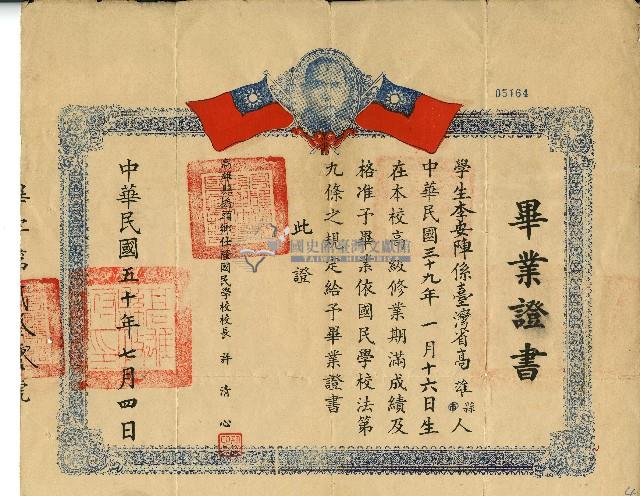 05164
畢業證書
學生李安陣係臺灣省高雄縣市人
中華民國三十九年一月十六日生
在本校高級修業期滿成績及
格准予畢業依國民學校法第
九條之規定給予畢業證書
此證
高雄縣橋頭鄉仕隆國民學校校長 許清心
中華民國五十年七月四日
國史館臺灣文獻館
TAIWAN HISTORICA